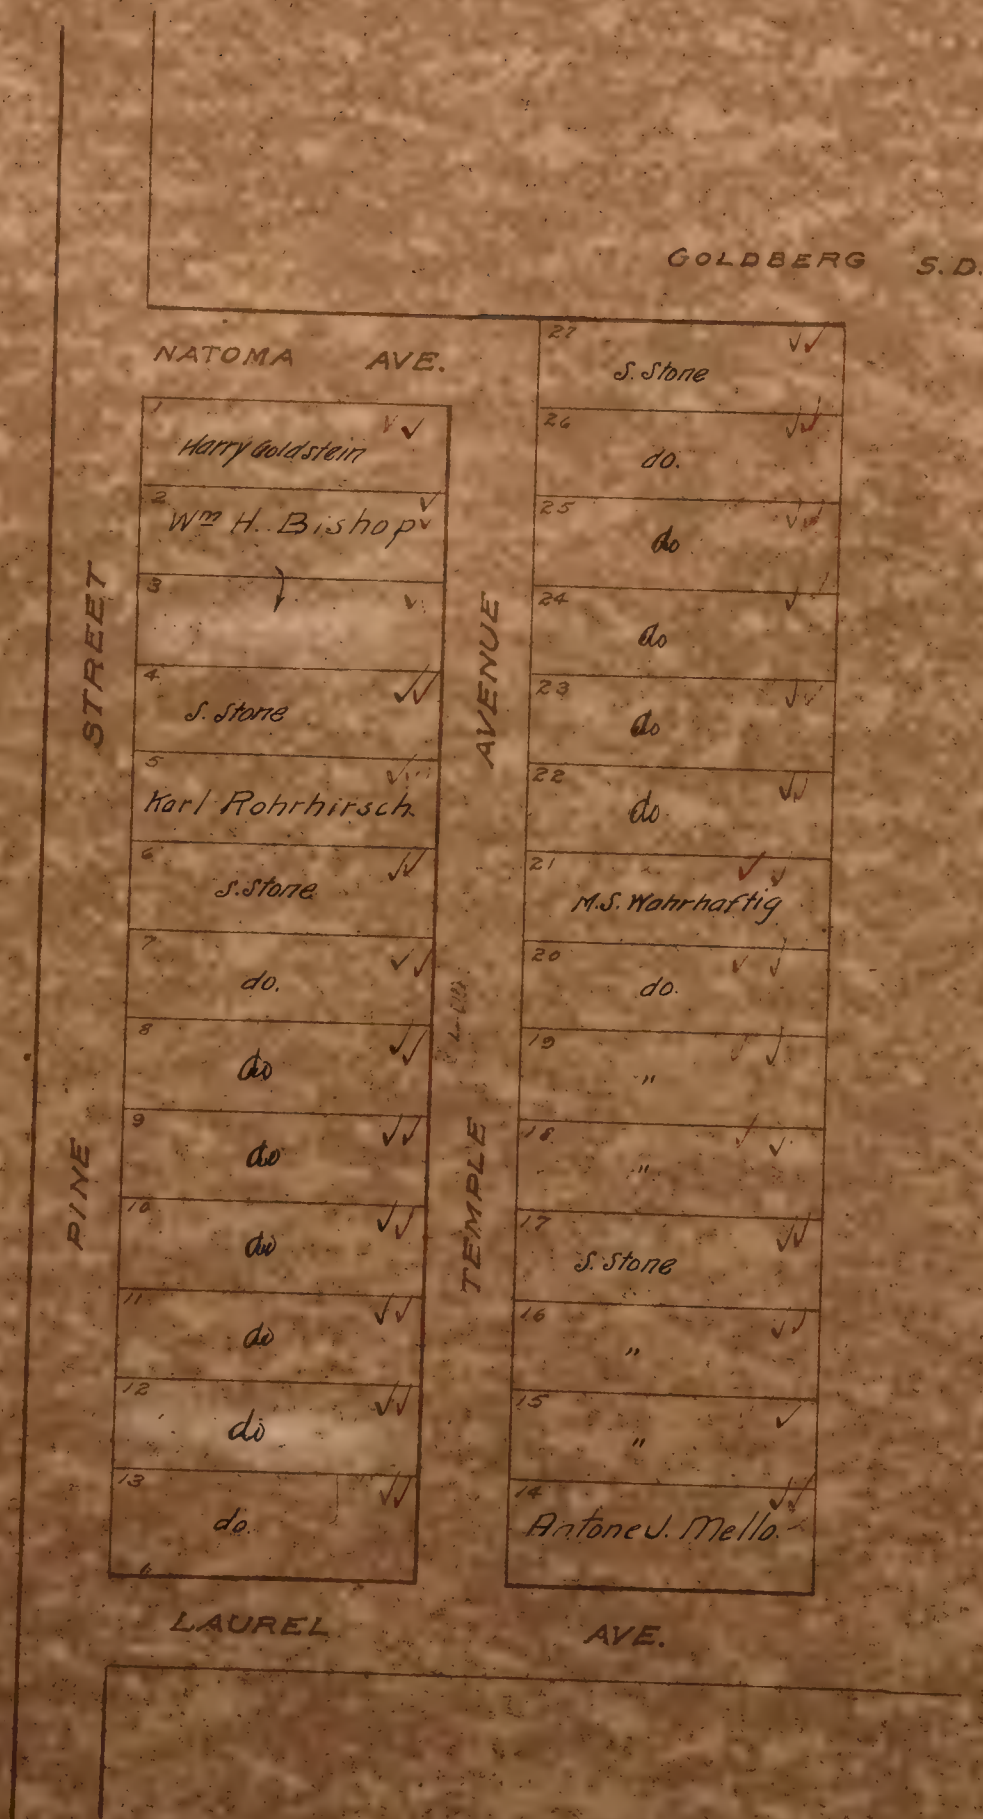 GOLDBERG S.D.
NATOMA AVE.
1
Harry Goldstein
2
Wm H. Bishop
3
4
S. Stone
5
Karl Rohrhirsch
6
S. Stone
7
do.
8
do
9
do
10
do
11
do
12
do
13
do.
PINE STREET
TEMPLE AVENUE
27
S. Stone
26
do.
25
do
24
do
23
do
22
do
21
M.S. Wahrhaftig
20
do.
19
"
18
"
17
S. Stone
16
"
15
"
14
Antone J. Mello.
LAUREL AVE.